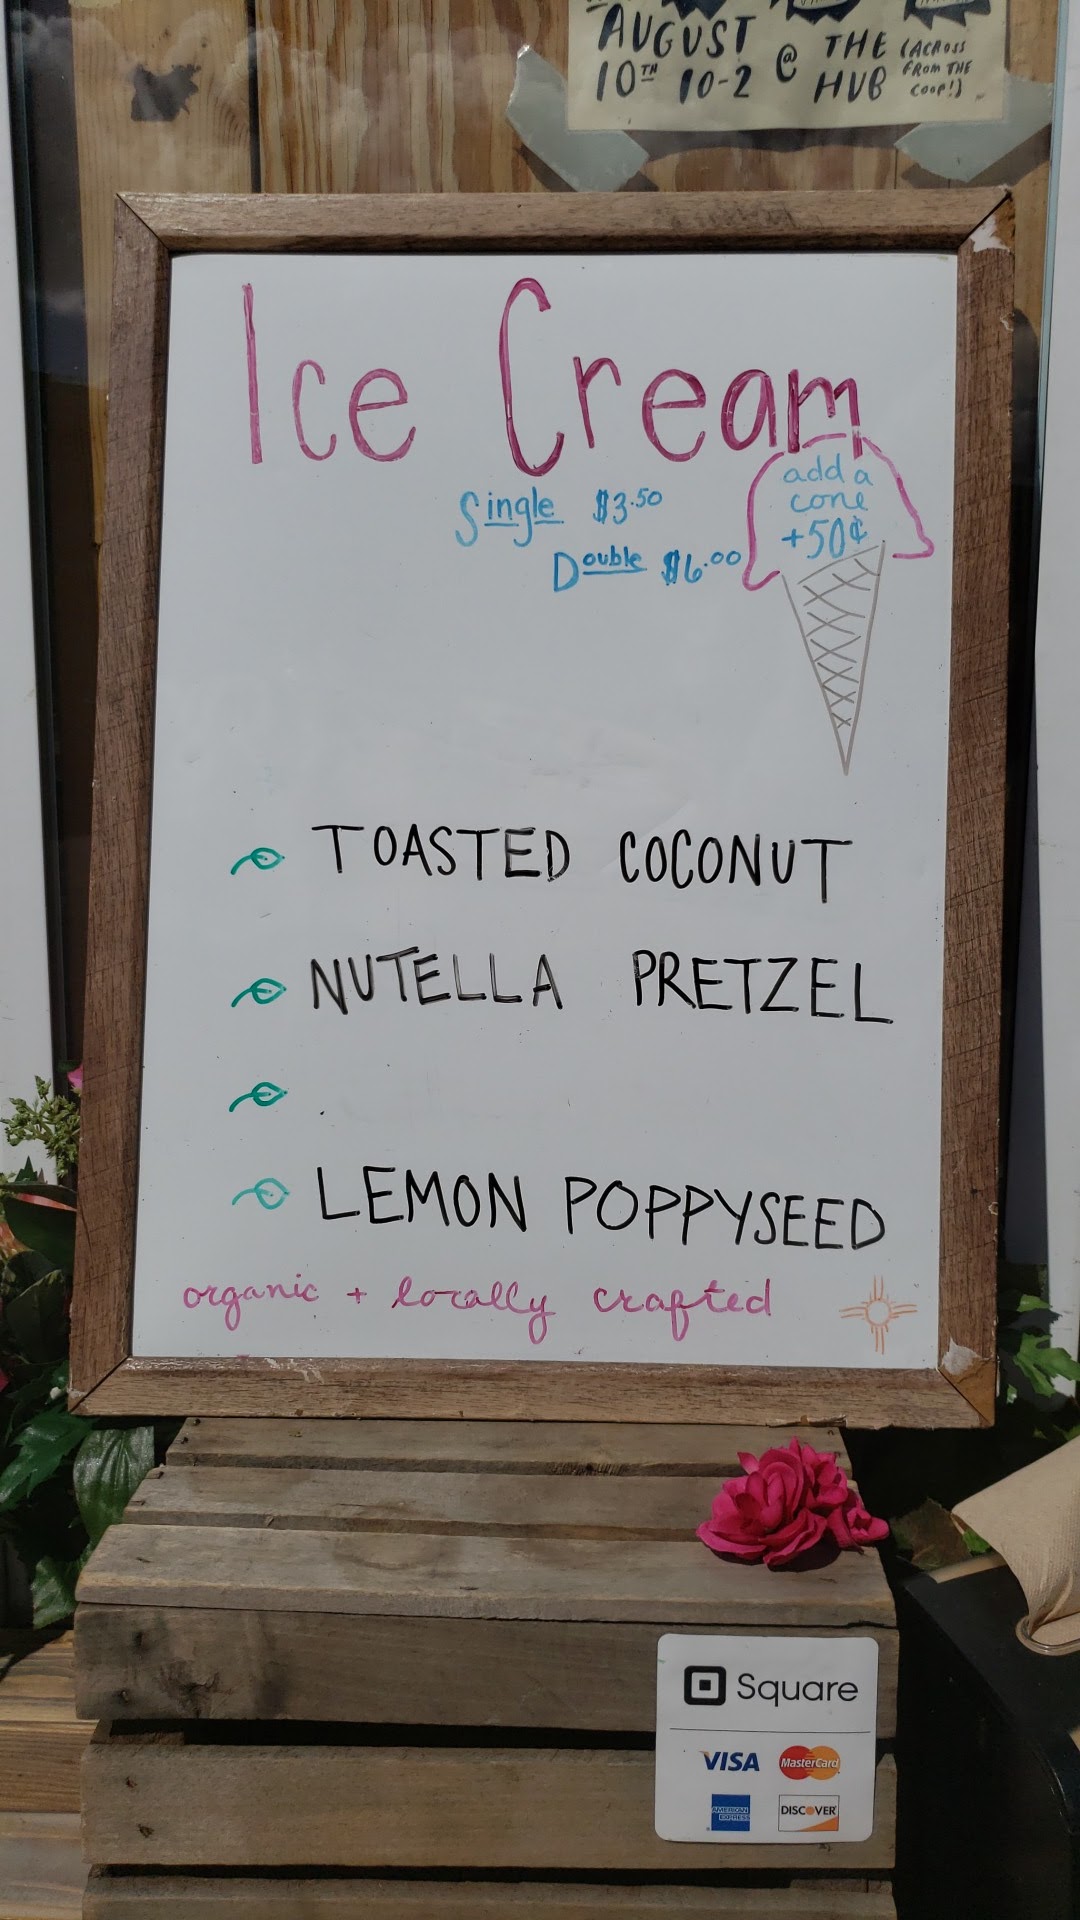 AUGUST
10TH 10-2 @ THE HUB (ACROSS FROM THE COOP!)
Ice Cream
Single $3.50
Double $6.00
add a
cone
+50¢
TOASTED COCONUT
NUTELLA PRETZEL
LEMON POPPYSEED
organic + locally crafted
Square
VISA MasterCard
AMERICAN EXPRESS DISCOVER